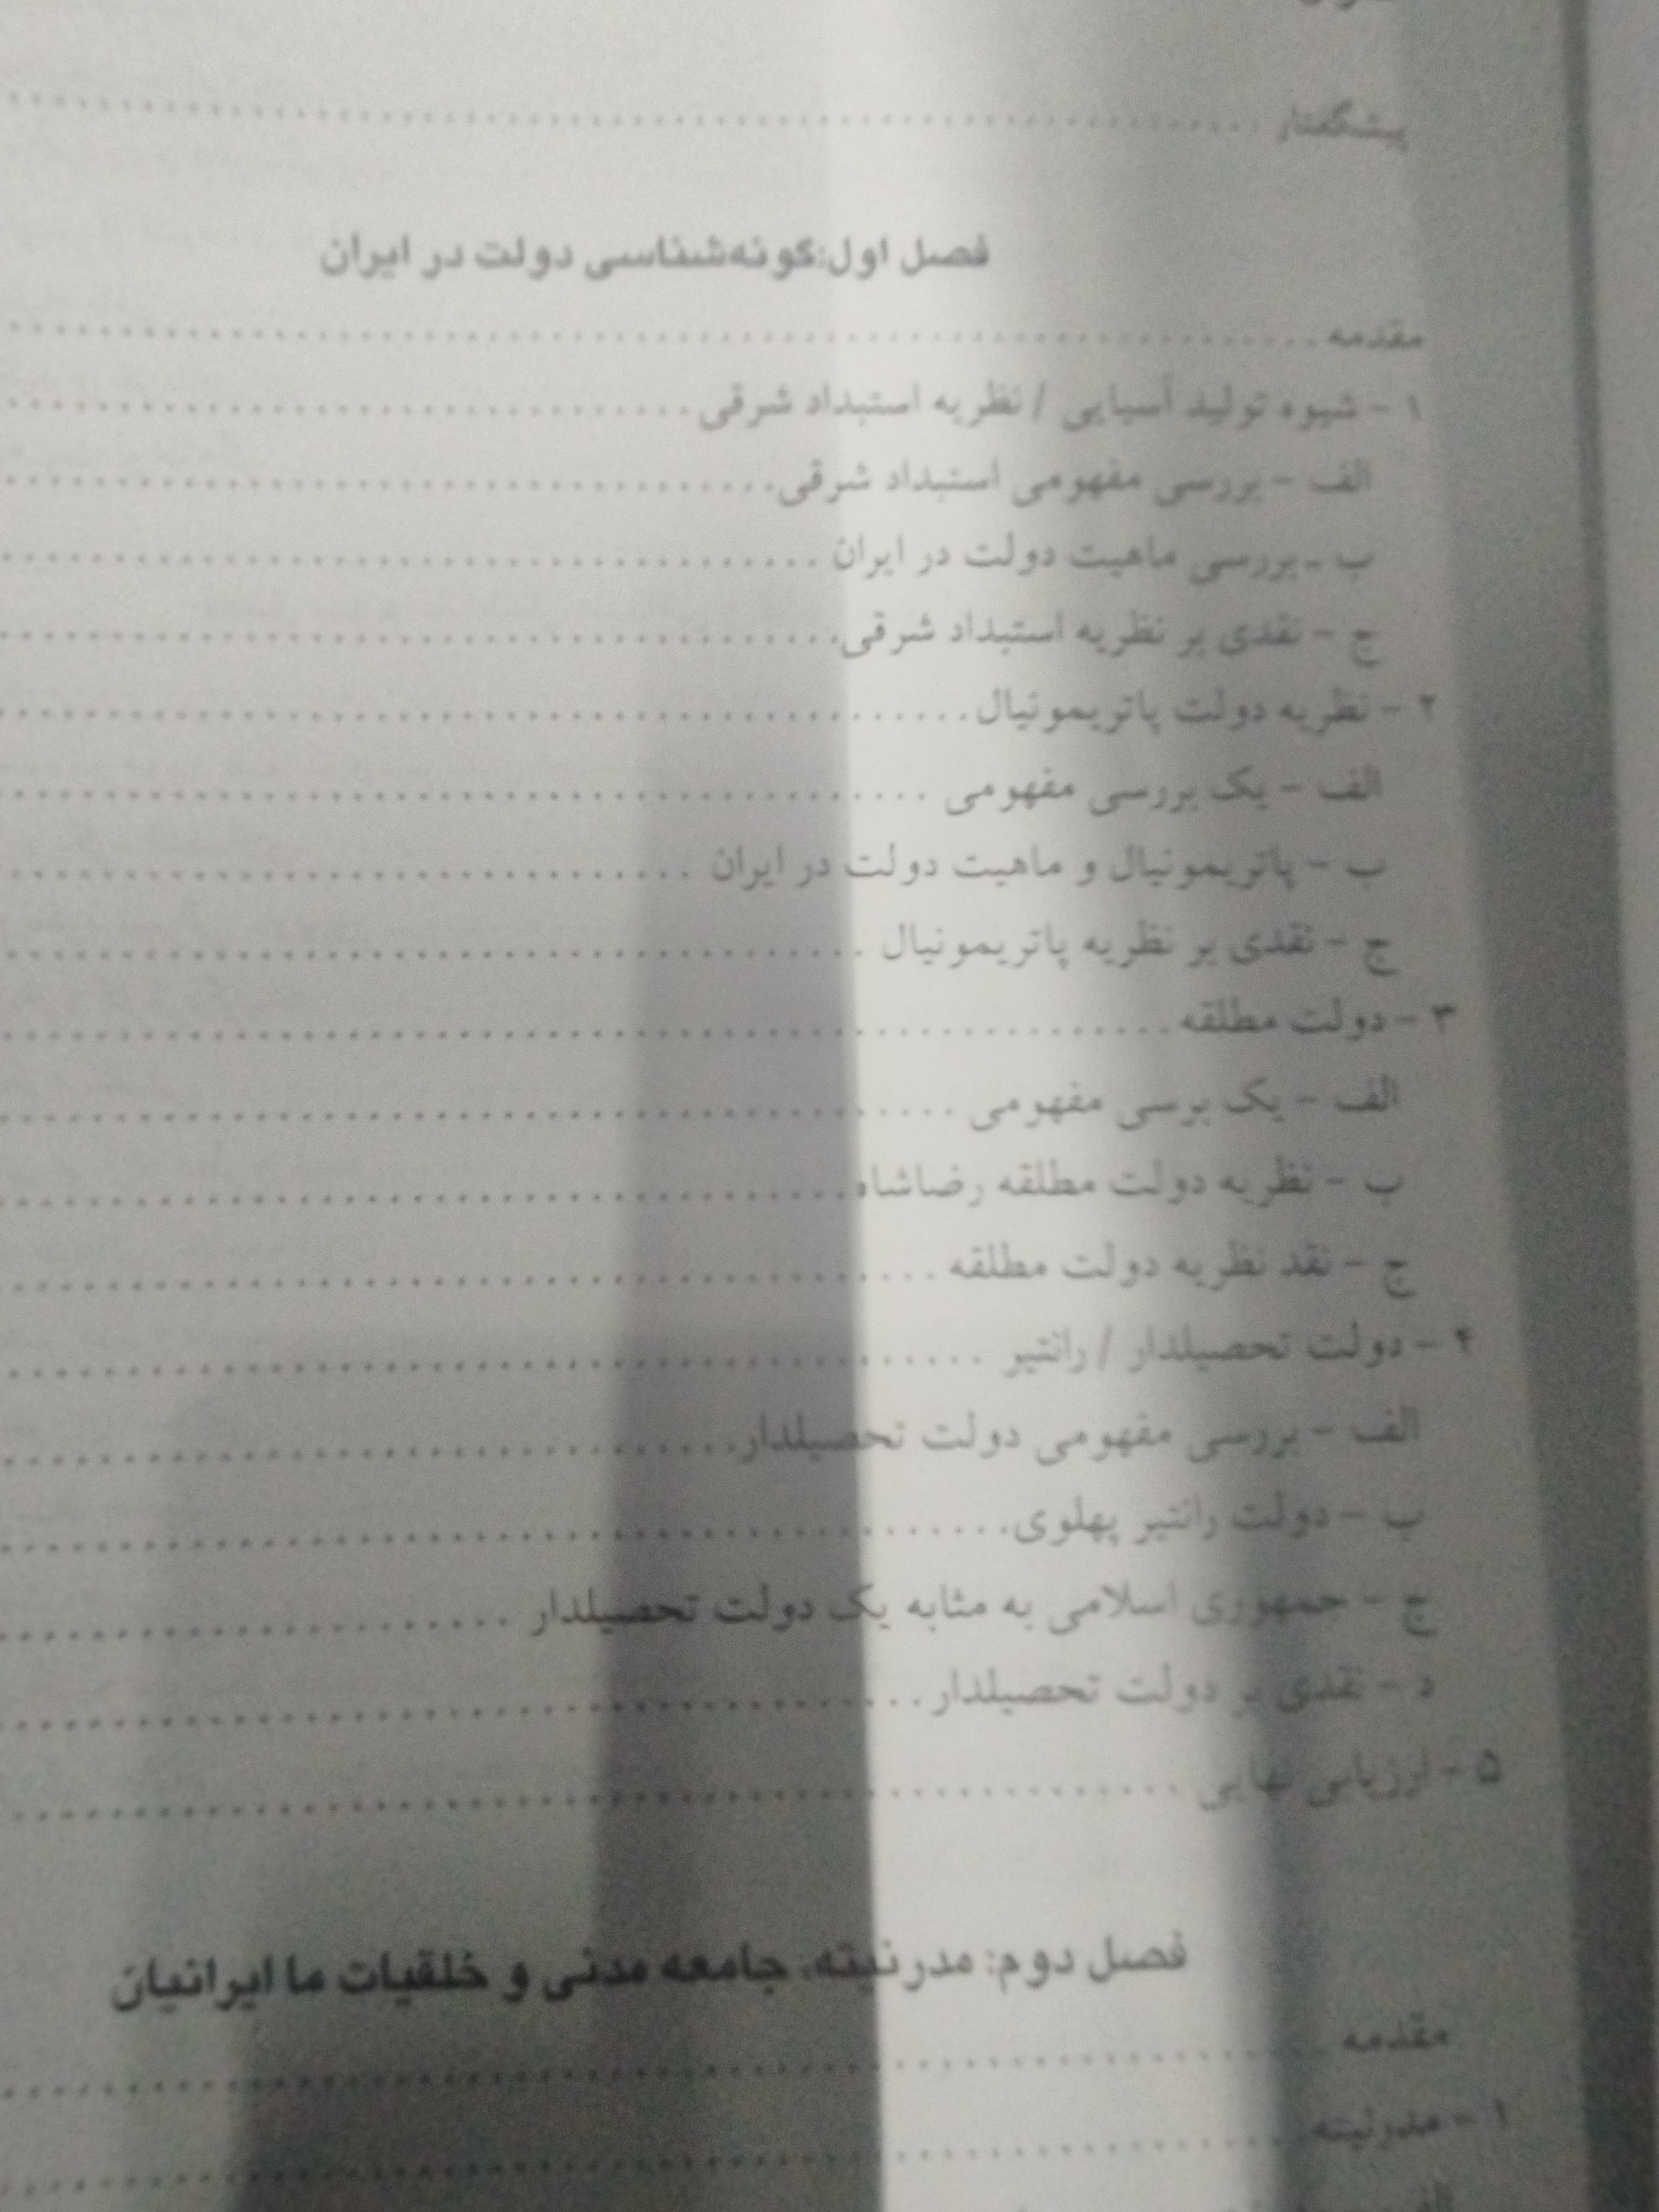 پیشگفتار
فصل اول:گونه‌شناسی دولت در ایران
مقدمه
۱ - شیوه تولید آسیایی / نظریه استبداد شرقی
الف - بررسی مفهومی استبداد شرقی
ب - بررسی ماهیت دولت در ایران
ج - نقدی بر نظریه استبداد شرقی
۲ - نظریه دولت پاتریمونیال
الف - یک بررسی مفهومی
ب - پاتریمونیال و ماهیت دولت در ایران
ج - نقدی بر نظریه پاتریمونیال
۳ - دولت مطلقه
الف - یک برسی مفهومی
ب - نظریه دولت مطلقه رضاشاه
ج - نقد نظریه دولت مطلقه
۴ - دولت تحصیلدار / رانتیر
الف - بررسی مفهومی دولت تحصیلدار
ب - دولت رانتیر پهلوی
ج - جمهوری اسلامی به مثابه یک دولت تحصیلدار
د - نقدی بر دولت تحصیلدار
۵ - ارزیابی نهایی
فصل دوم: مدرنیته، جامعه مدنی و خلقیات ما ایرانیان
مقدمه
۱ - مدرنیته
الف